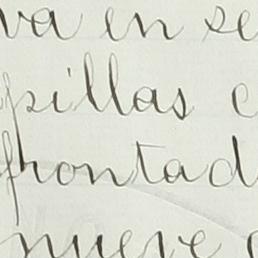 va en se
pillas c
frontad
nueve